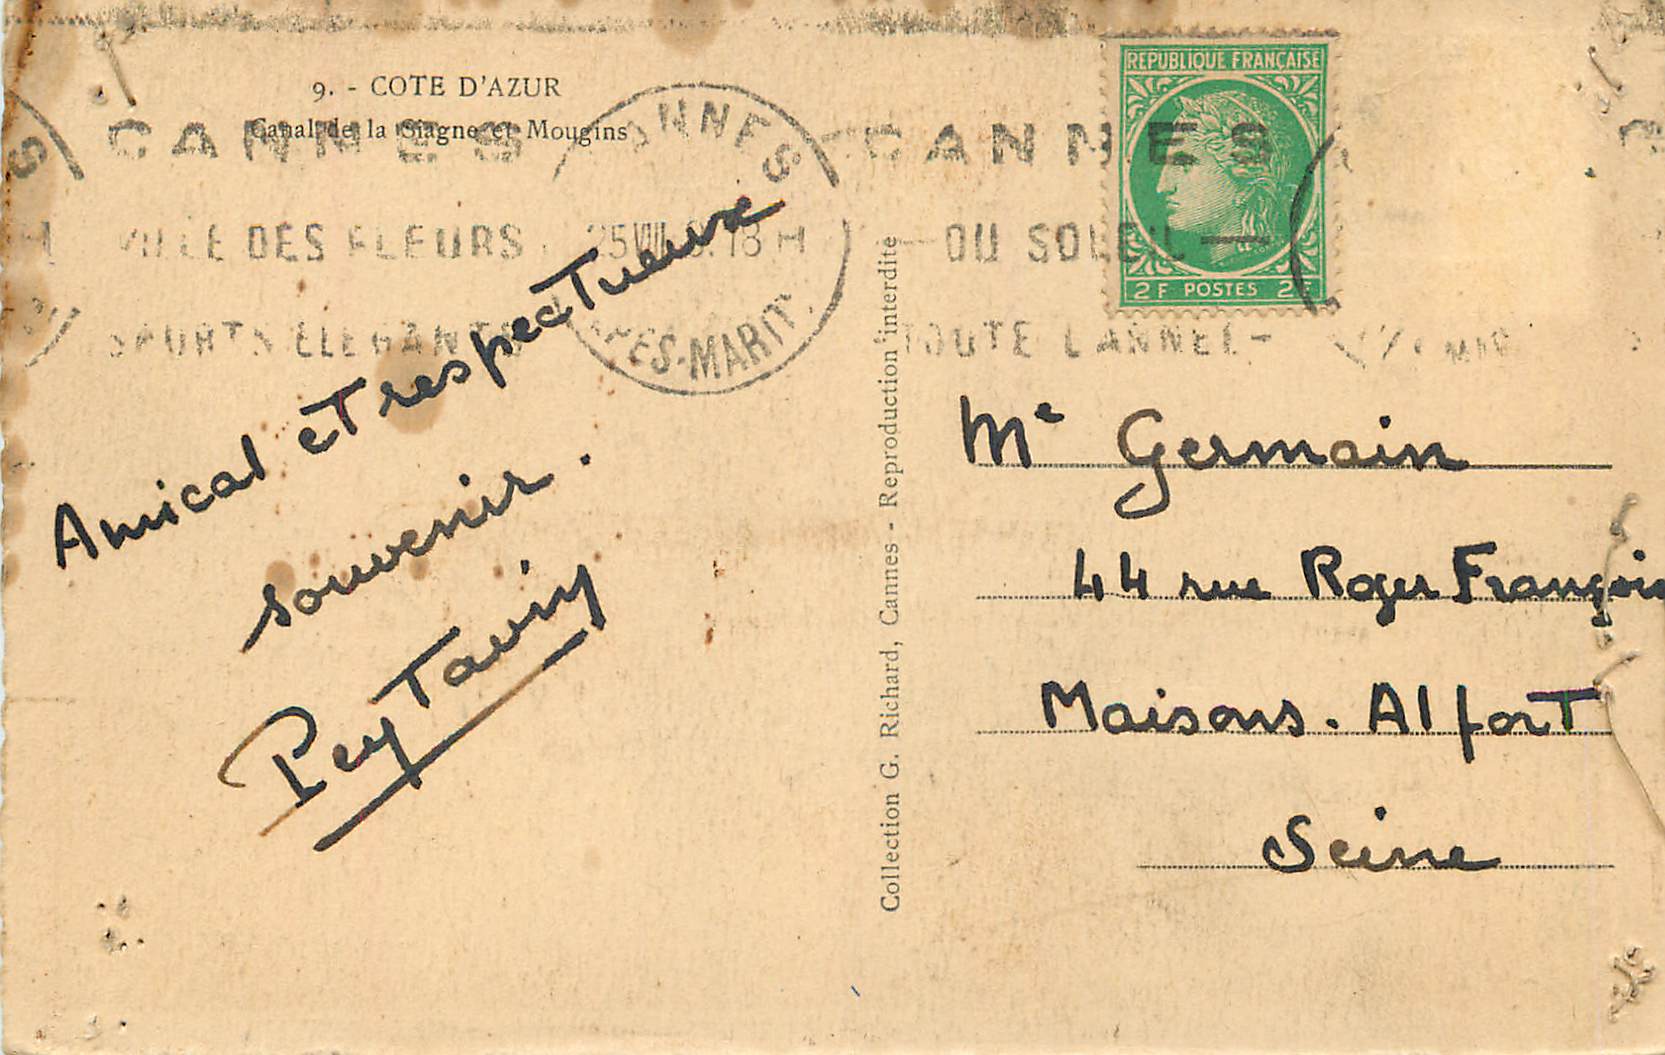 9. - COTE D'AZUR
Canal de la Siagne et Mougins
CANNES
VILLE DES FLEURS
SPORTS ELEGANTS
CANNES
25 VII 18 H
ALPES-MARIT.
CANNES
DU SOLEIL
TOUTE L'ANNEE
REPUBLIQUE FRANÇAISE
2F POSTES 2F
Amical eT respecTueux
souvenir.
PeyTaviy
Collection G. Richard, Cannes - Reproduction interdite
Me Germain
44 rue Roger François
Maisons. AlforT
Seine